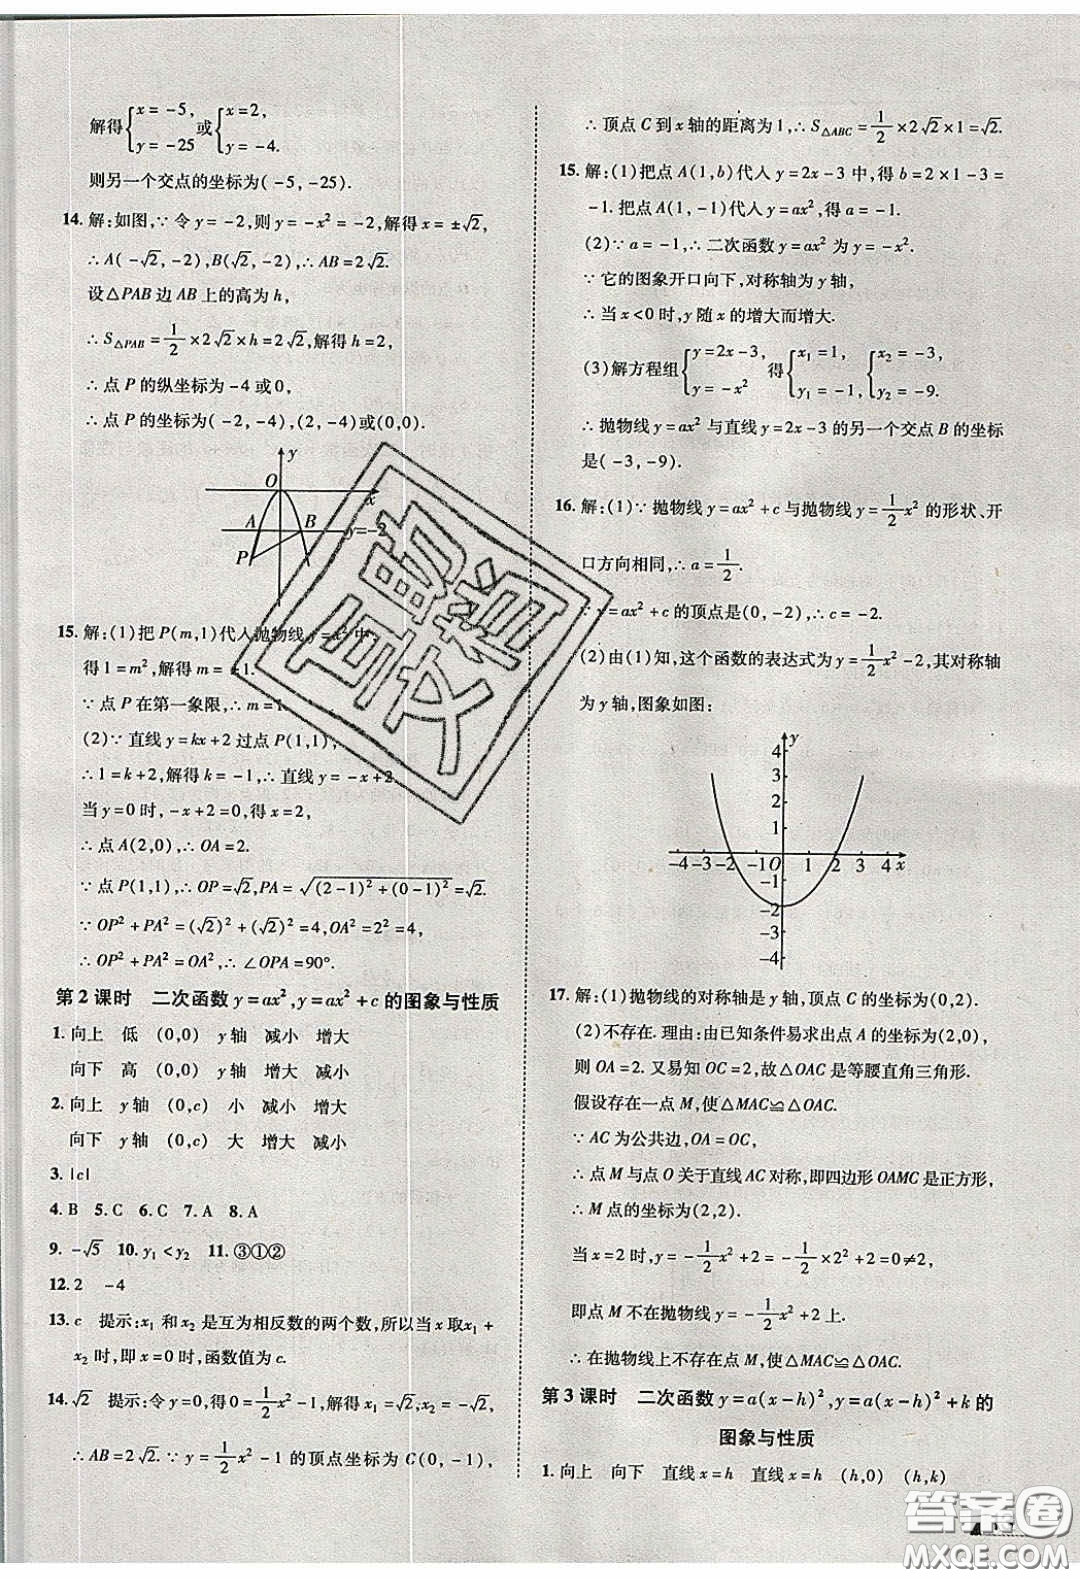 解得{x=-5, y=-25 或{x=2, y=-4.
则另一个交点的坐标为(-5,-25).
14. 解:如图,∵令y=-2,则y=-x²=-2,解得x=±√2,
∴A(-√2,-2),B(√2,-2),∴AB=2√2.
设△PAB边AB上的高为h,
∴S△PAB=1/2×2√2×h=2√2,解得h=2,
∴点P的纵坐标为-4或0,
∴点P的坐标为(-2,-4),(2,-4)或(0,0).
y
O x
A B y=-2
P
15. 解:(1)把P(m,1)代人抛物线y=x²中
得1=m²,解得m=±1.
∵点P在第一象限,∴m=1
(2)∵直线y=kx+2过点P(1,1),
∴1=k+2,解得k=-1,∴直线y=-x+2
当y=0时,-x+2=0,得x=2,
∴点A(2,0),∴OA=2.
∵点P(1,1),∴OP=√2,PA=√((2-1)²+(0-1)²)=√2.
∵OP²+PA²=(√2)²+(√2)²=4,OA²=2²=4,
∴OP²+PA²=OA²,∴∠OPA=90°.
第2课时 二次函数y=ax²,y=ax²+c的图象与性质
1. 向上 低 (0,0) y轴 减小 增大
向下 高 (0,0) y轴 增大 减小
2. 向上 y轴 (0,c) 小 减小 增大
向下 y轴 (0,c) 大 增大 减小
3. |c|
4. B 5. C 6. C 7. A 8. A
9. -√5 10. y₁<y₂ 11. ③①②
12. 2 -4
13. c 提示:x₁和x₂是互为相反数的两个数,所以当x取x₁+
x₂时,即x=0时,函数值为c.
14. √2 提示:令y=0,得0=1/2x²-1,解得x₁=√2,x₂=-√2,
∴AB=2√2.∵y=1/2x²-1的顶点坐标为C(0,-1),
∴顶点C到x轴的距离为1,∴S△ABC=1/2×2√2×1=√2.
15. 解:(1)把点A(1,b)代人y=2x-3中,得b=2×1-3=
-1.把点A(1,-1)代人y=ax²,得a=-1.
(2)∵a=-1,∴二次函数y=ax²为y=-x².
∵它的图象开口向下,对称轴为y轴,
∴当x<0时,y随x的增大而增大.
(3)解方程组{y=2x-3, y=-x² 得{x₁=1, y₁=-1, {x₂=-3, y₂=-9.
∴抛物线y=ax²与直线y=2x-3的另一个交点B的坐标
是(-3,-9).
16. 解:(1)∵抛物线y=ax²+c与抛物线y=1/2x²的形状、开
口方向相同,∴a=1/2.
∵y=ax²+c的顶点是(0,-2),∴c=-2.
(2)由(1)知,这个函数的表达式为y=1/2x²-2,其对称轴
为y轴,图象如图:
y
4
3
2
1
-4 -3 -2 -1 O 1 2 3 4 x
-1
-2
-3
-4
17. 解:(1)抛物线的对称轴是y轴,顶点C的坐标为(0,2).
(2)不存在.理由:由已知条件易求出点A的坐标为(2,0),
则OA=2.又易知OC=2,故△OAC是等腰直角三角形.
假设存在一点M,使△MAC≌△OAC.
∵AC为公共边,OA=OC,
∴点M与点O关于直线AC对称,即四边形OAMC是正方形,
∴M点的坐标为(2,2).
当x=2时,y=-1/2x²+2=-1/2×2²+2=0≠2,
即点M不在抛物线y=-1/2x²+2上.
∴在抛物线上不存在点M,使△MAC≌△OAC.
第3课时 二次函数y=a(x-h)²,y=a(x-h)²+k的
图象与性质
1. 向上 向下 直线x=h 直线x=h (h,0) (h,k)
答案圈
MXQE.COM